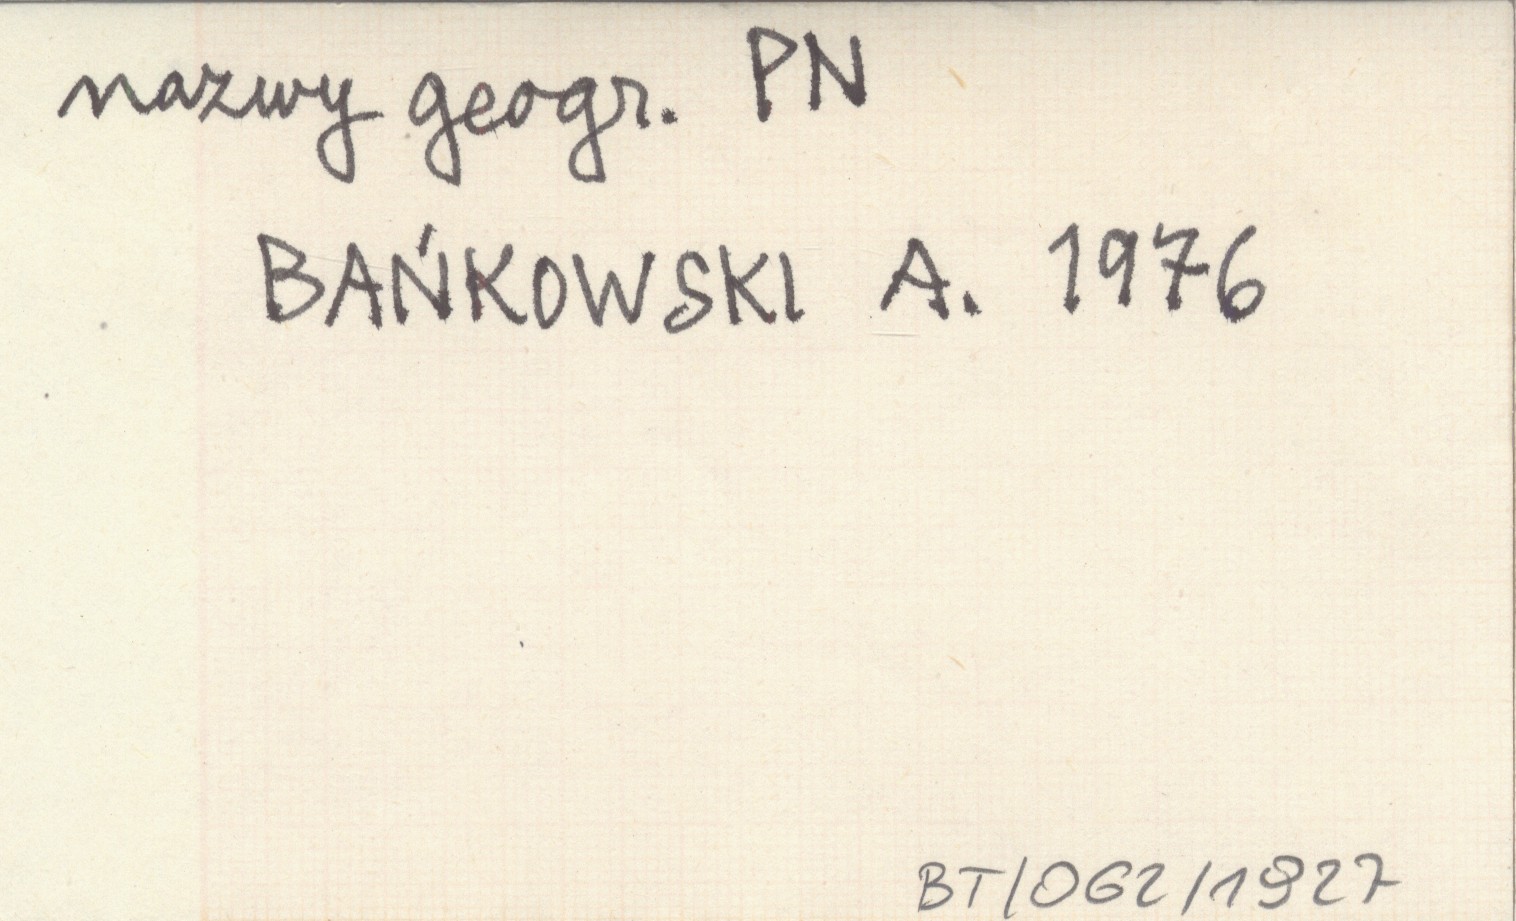 nazwy geogr. PN
BAŃKOWSKI A. 1976
BT/062/1927